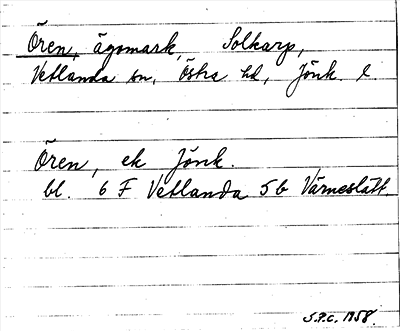 Ören, ägomark, Solkarp,
Vetlanda sn, Östra hd, Jönk. l.
Ören, ek Jönk.
bl. 6 F Vetlanda 5b Värneslätt
S.P.C. 1958.